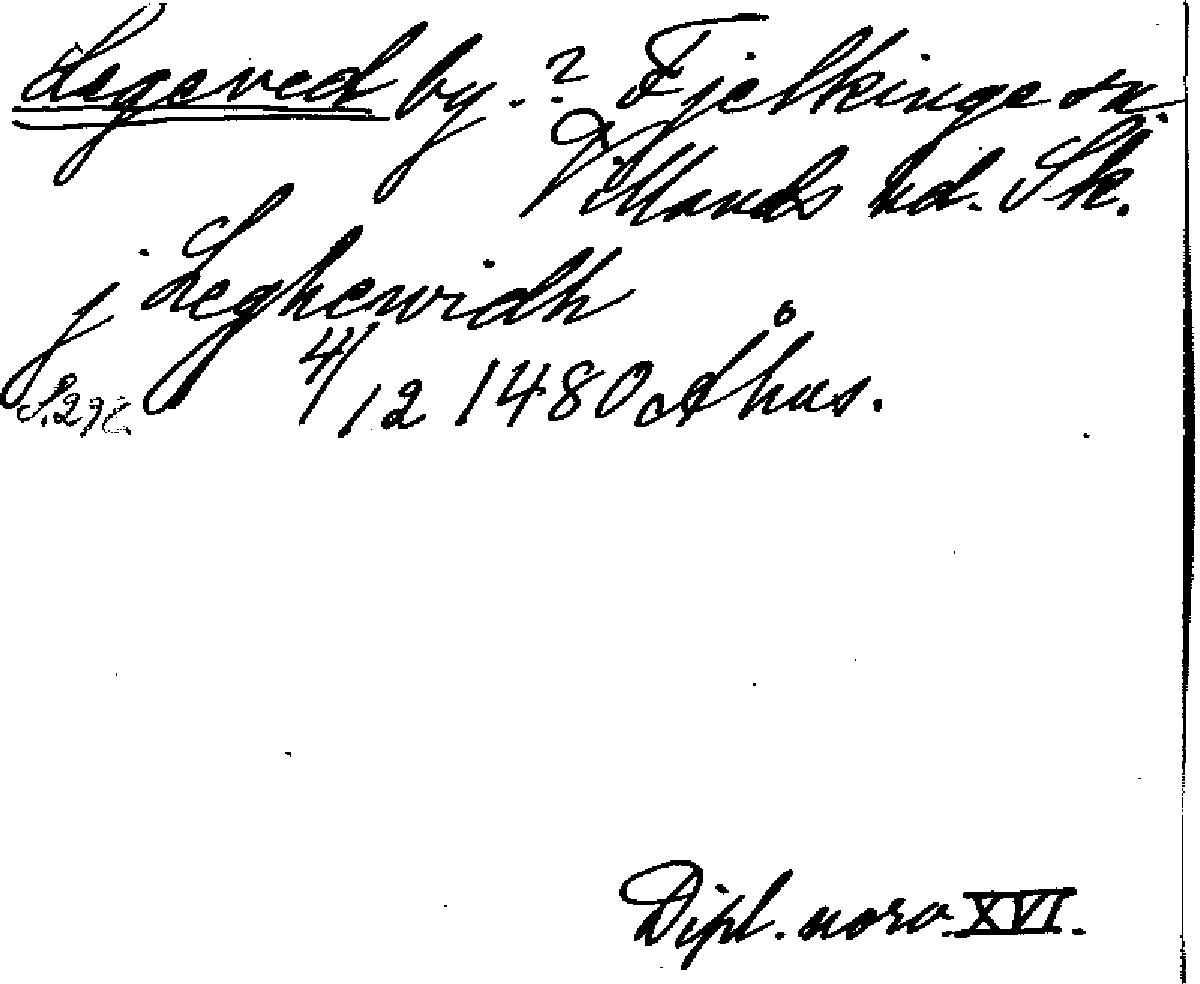 Legeved by. ? Fjelkinge sn.
Villands hd. Sk.
j Leghewidh
S. 296. 4/12 1480 Åhus.
Dipl. norv. XVI.